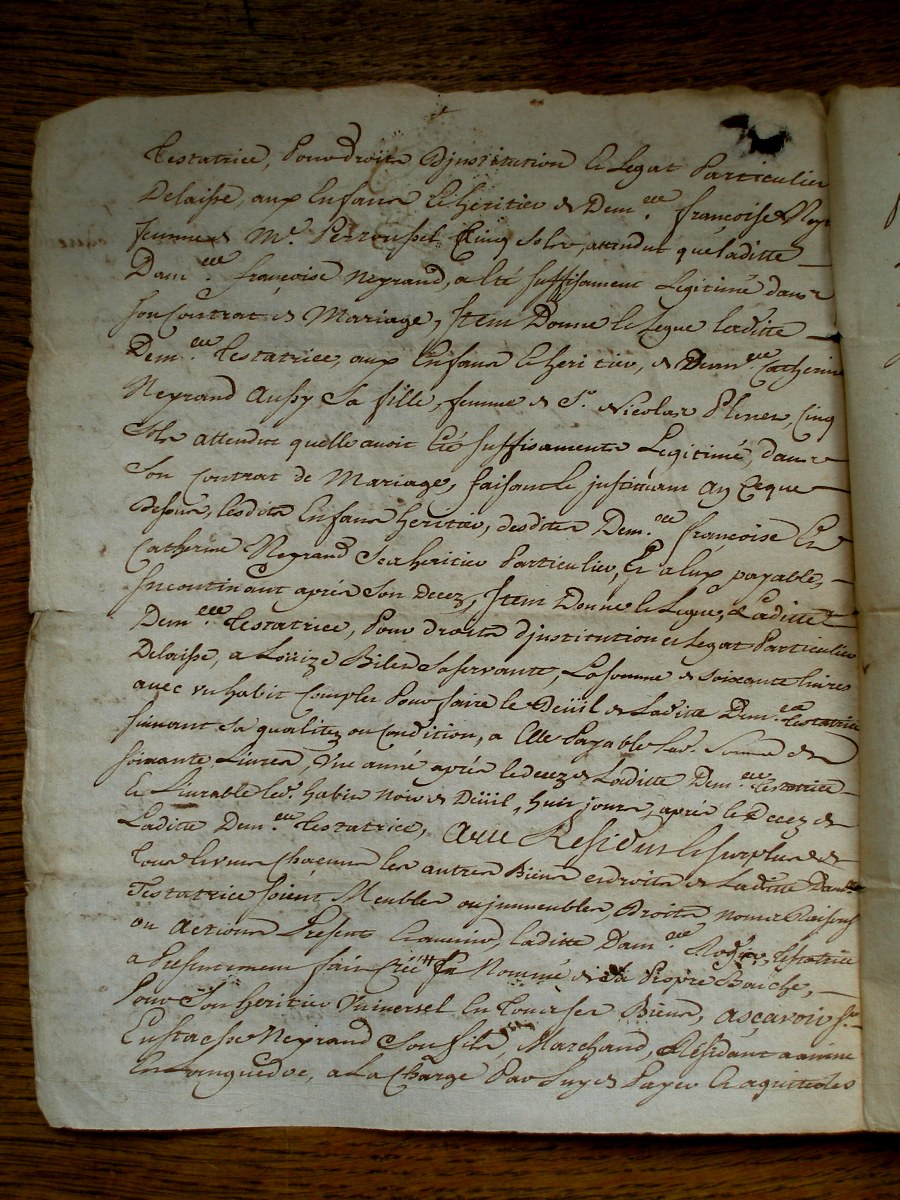 Testatrice, Pour droits d'justitution et Legat Particulier
Delaisse, aux Enfans et heritier de Dem.elle françoise Ney
femme de Mr. Perrousset Cinq Sols, attendut que laditte
Dam.elle françoise Neyrand, a Eté suffisament Legitimé dans
son Contrat de Mariage, Item Donne et Legue laditte
Dem.elle Testatrice, aux Enfans et heritier, de Dem.elle Catherine
Neyrand Aussy Sa fille, femme de Sr. Nicolas Cinq
Sols attendut quelle avoit Eté suffisamente Legitimé, dans
Son Contrat de Mariage, faisant et justituant en Ceque
Dessus, lesdits Enfans heritier, desdittes Dem.elle françoise Et
Catherine Neyrand Ses heritier Particulier, Et a Eux payable,
Incontinant après Son decez, Item Donne et Legue, Laditte
Dem.elle Testatrice, Pour droits d'justitution et Legat Particulier
Delaisse, a Loüize Sa servante, La somme de soixante livres
avec un habit Complet Pour faire le Deüil de Laditte Dem.elle Testatrice
suivant sa qualitez ou Condition, a Elle Payable Lad. Somme de
soixante Livres, Une année après le decez de Laditte Dem.elle Testatrice
Et Livrable led. habit Noir de Deüil, huit jours, après le decez de
Laditte Dem.elle Testatrice, Au Residus et surplus de
Tous et uns Chacuns les autres Biens et droits de Laditte Dam.elle
Testatrice soient Meubles ou jmmeubles, Droits noms Raisons
ou actions Present et avenir, laditte Dam.elle Testatrice
a Presentement fait Créé Nommé de Sa Propre Bouche,
Pour Son heritier Universel En Tous ses Biens, ascavoir Sr.
Eustache Neyrand Son fils, Marchand, Residant a
En Languedoc, a La Charge Par Luy de Payer Et aquitter les